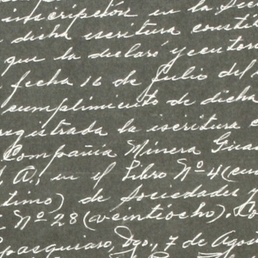 inscripción en la Sec
dicha escritura constit
que la declaró y ecutori
fecha 16 de Julio del
cumplimiento de dicha
registrada la iscritura c
Compañía Minera Gua
A., en el Libro Nº 4 (cua
timo) de Sociedades y
Nº 28 (veintiocho).
Dgo., 7 de Agos